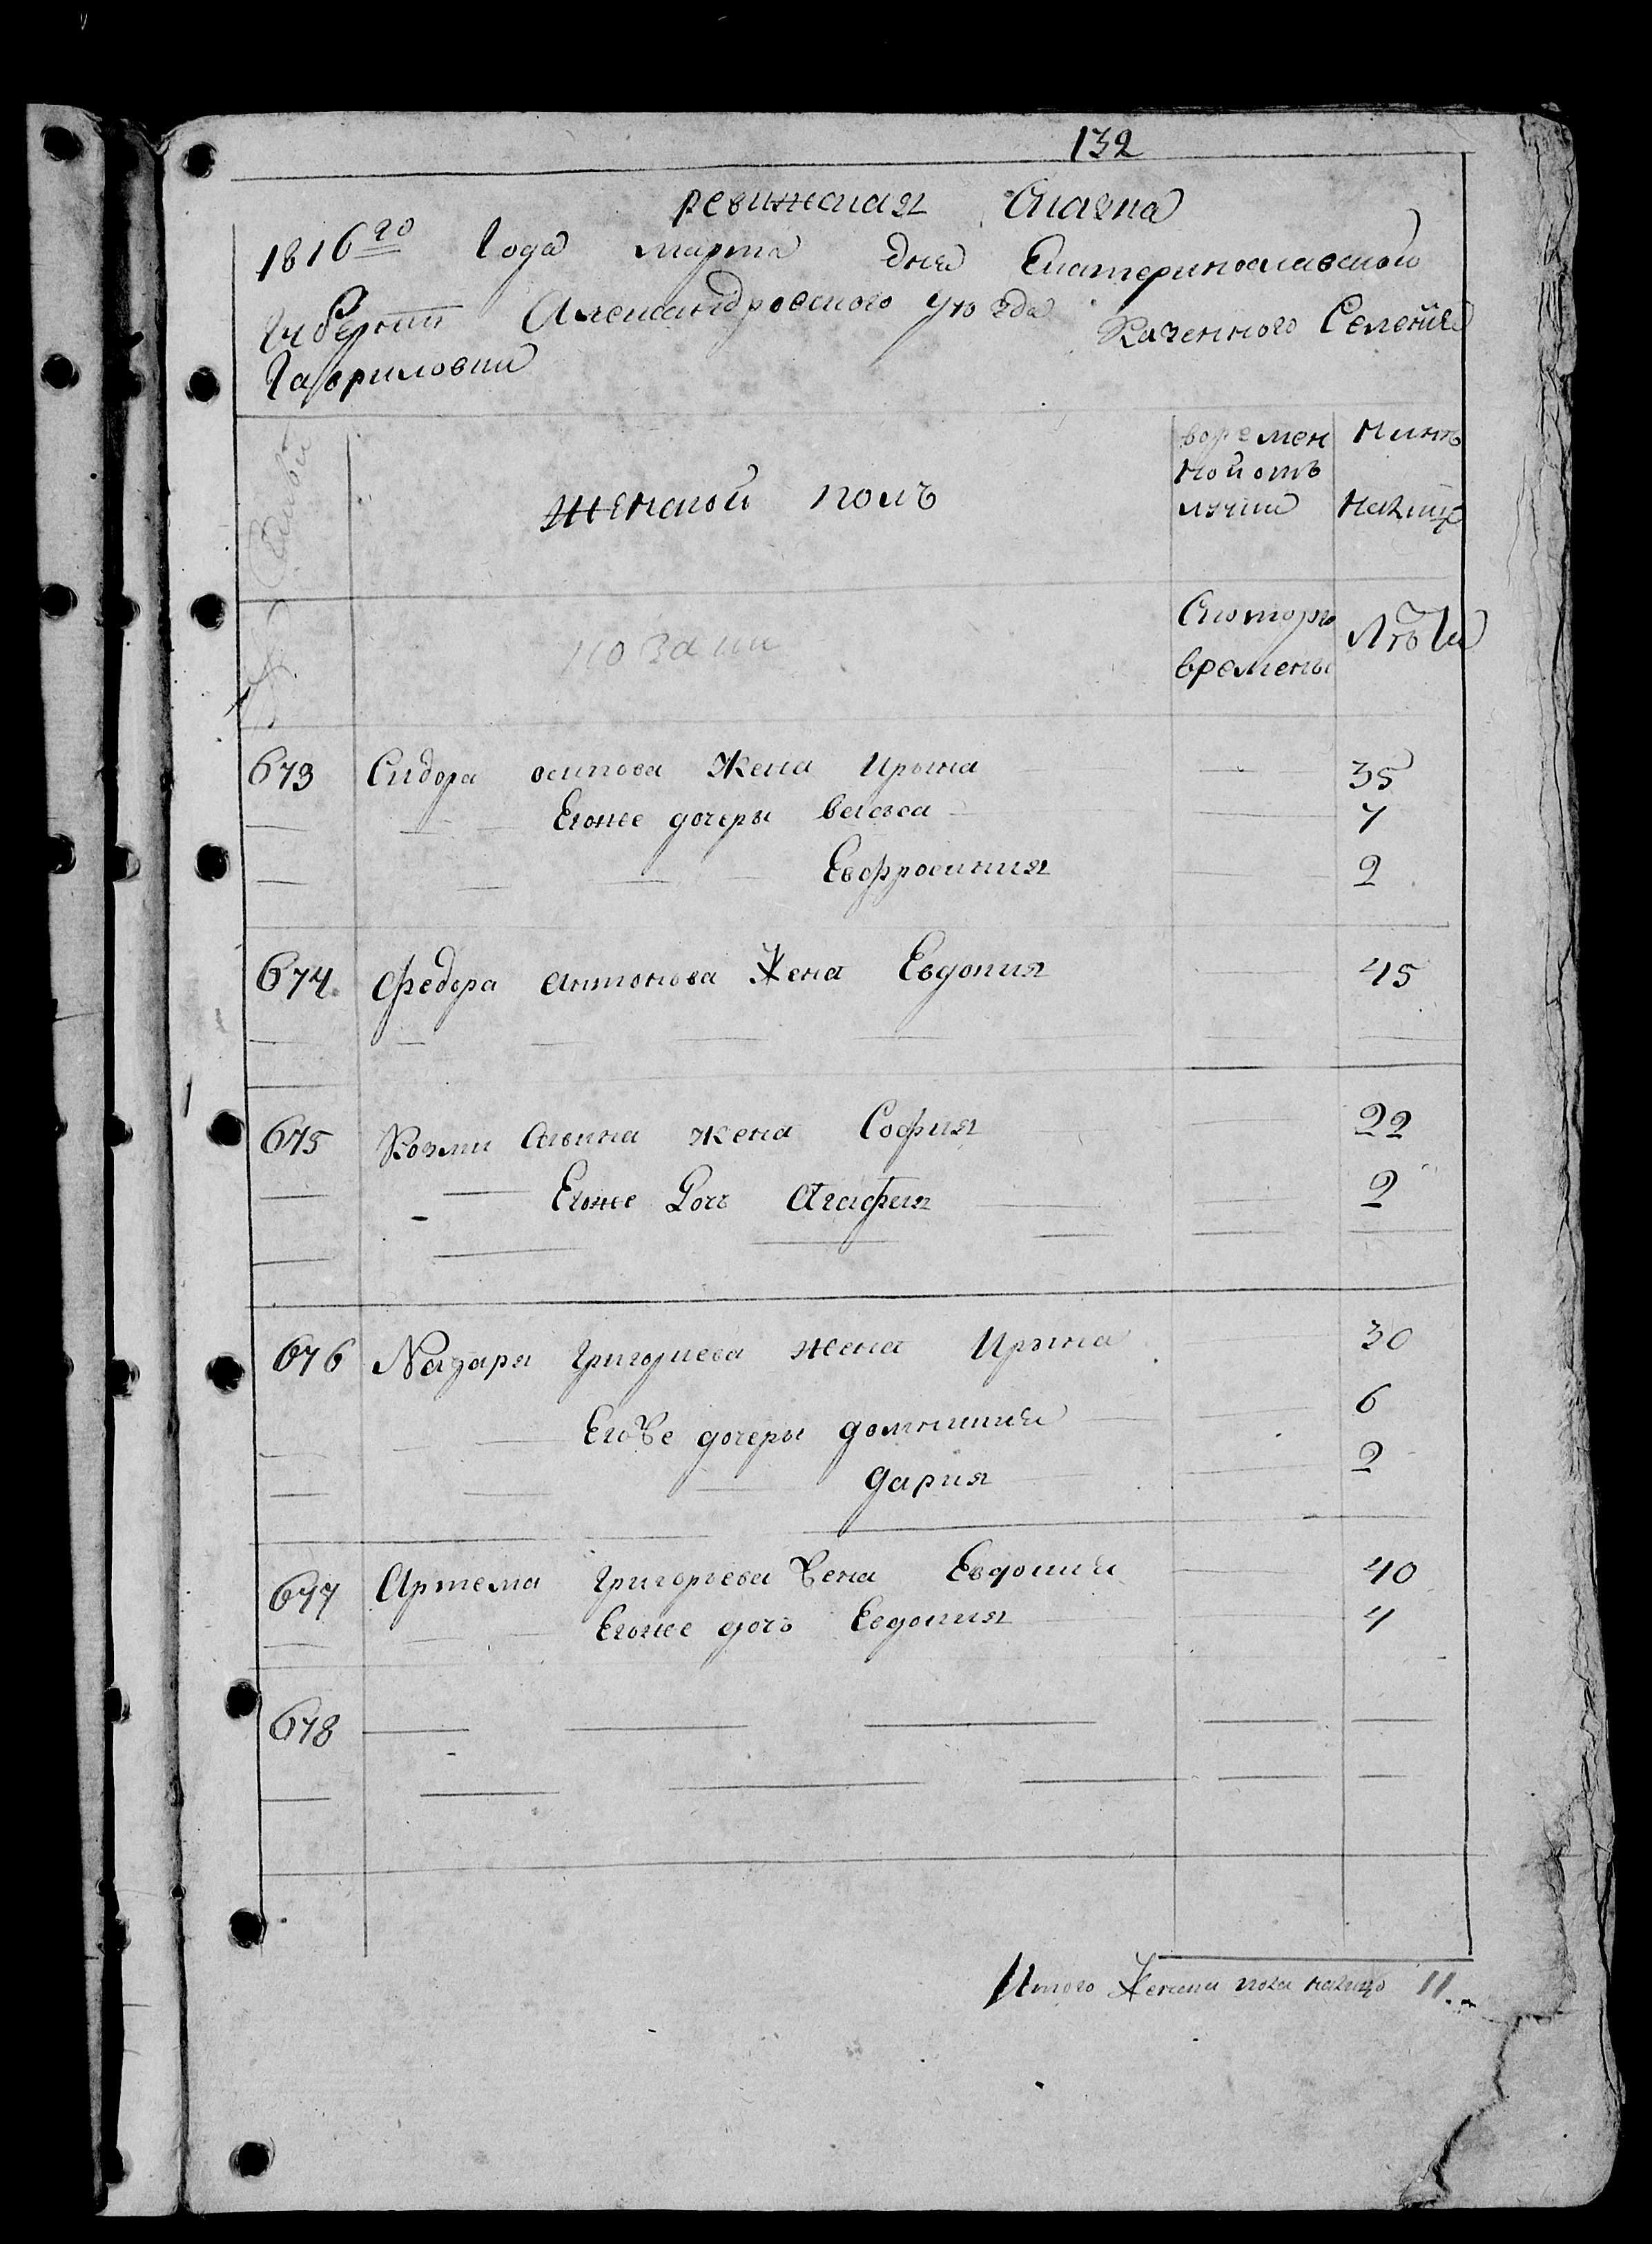 132
ревижская Скаска
1816го Года марта дня Екатеринославской
Губернии Александровского уезда Казенного Селения
Гавриловки
Семьи
женской полъ
воремен
ной отъ
лучки
Нынѣ
налицо
козаки
Скоторго
времены
Лѣта
673 Сидора осипова жена Ирына 35
Егожее дочеры васса 7
Евфросиния 2
674 Федора антонова жена Евдокия 45
675 Козми Савина жена София 22
Егожее Дочь Агафия 2
676 Назара Григориева жена Ирына 30
Егоже дочеры домникия 6
Дария 2
677 Артема Григорьева жена Евдокия 40
Егожее дочь Евдокия 4
678
Итого женска пола налицо 11